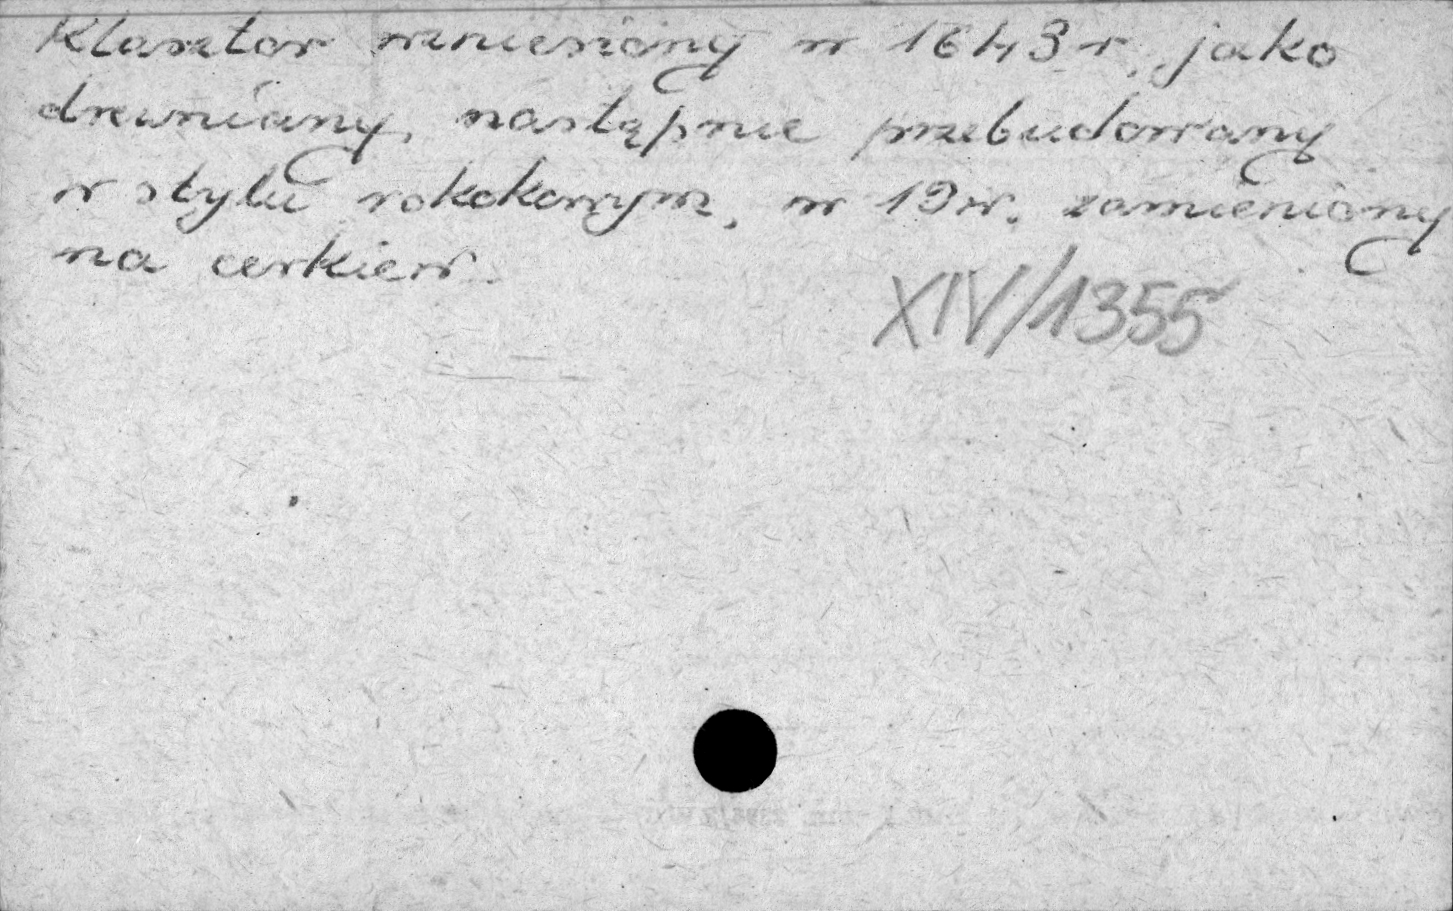 Klasztor wzniesiony w 1643 r. jako
drewniany, następnie przebudowany
w stylu rokokowym, w 19 w. zamieniony
na cerkiew.
XIV/1355